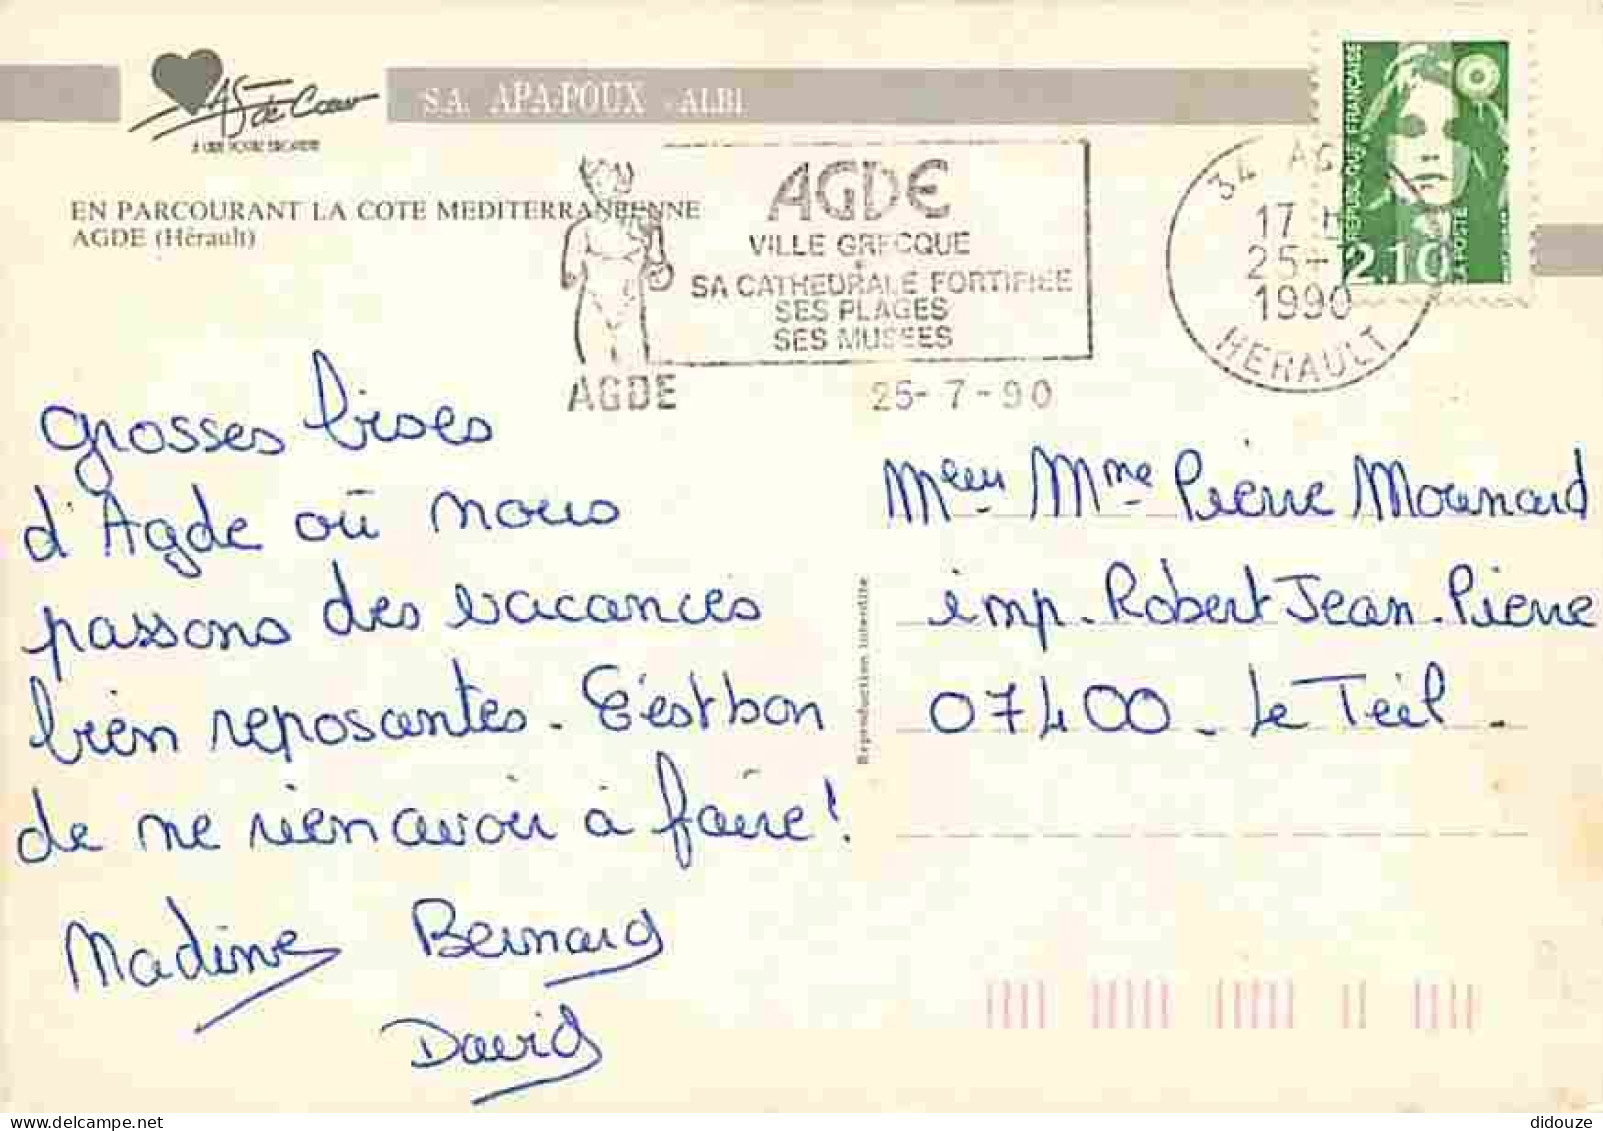 As de Cœur
S.A. APA-POUX - ALBI
EN PARCOURANT LA COTE MEDITERRANEENNE
AGDE (Hérault)
AGDE
AGDE
VILLE GRECQUE
SA CATHEDRALE FORTIFIEE
SES PLAGES
SES MUSEES
25-7-90
34 AG
17 H
25-
1990
HERAULT
REPUBLIQUE FRANÇAISE
2,10
LA POSTE
Grosses bises
d'Agde où nous
passons des vacances
bien reposantes. C'est bon
de ne rien avoir à faire!
Nadine Bernard
David
Reproduction interdite
Mme Pierre Mounard
imp. Robert Jean-Pierre
07400 - Le Teil -
didouze